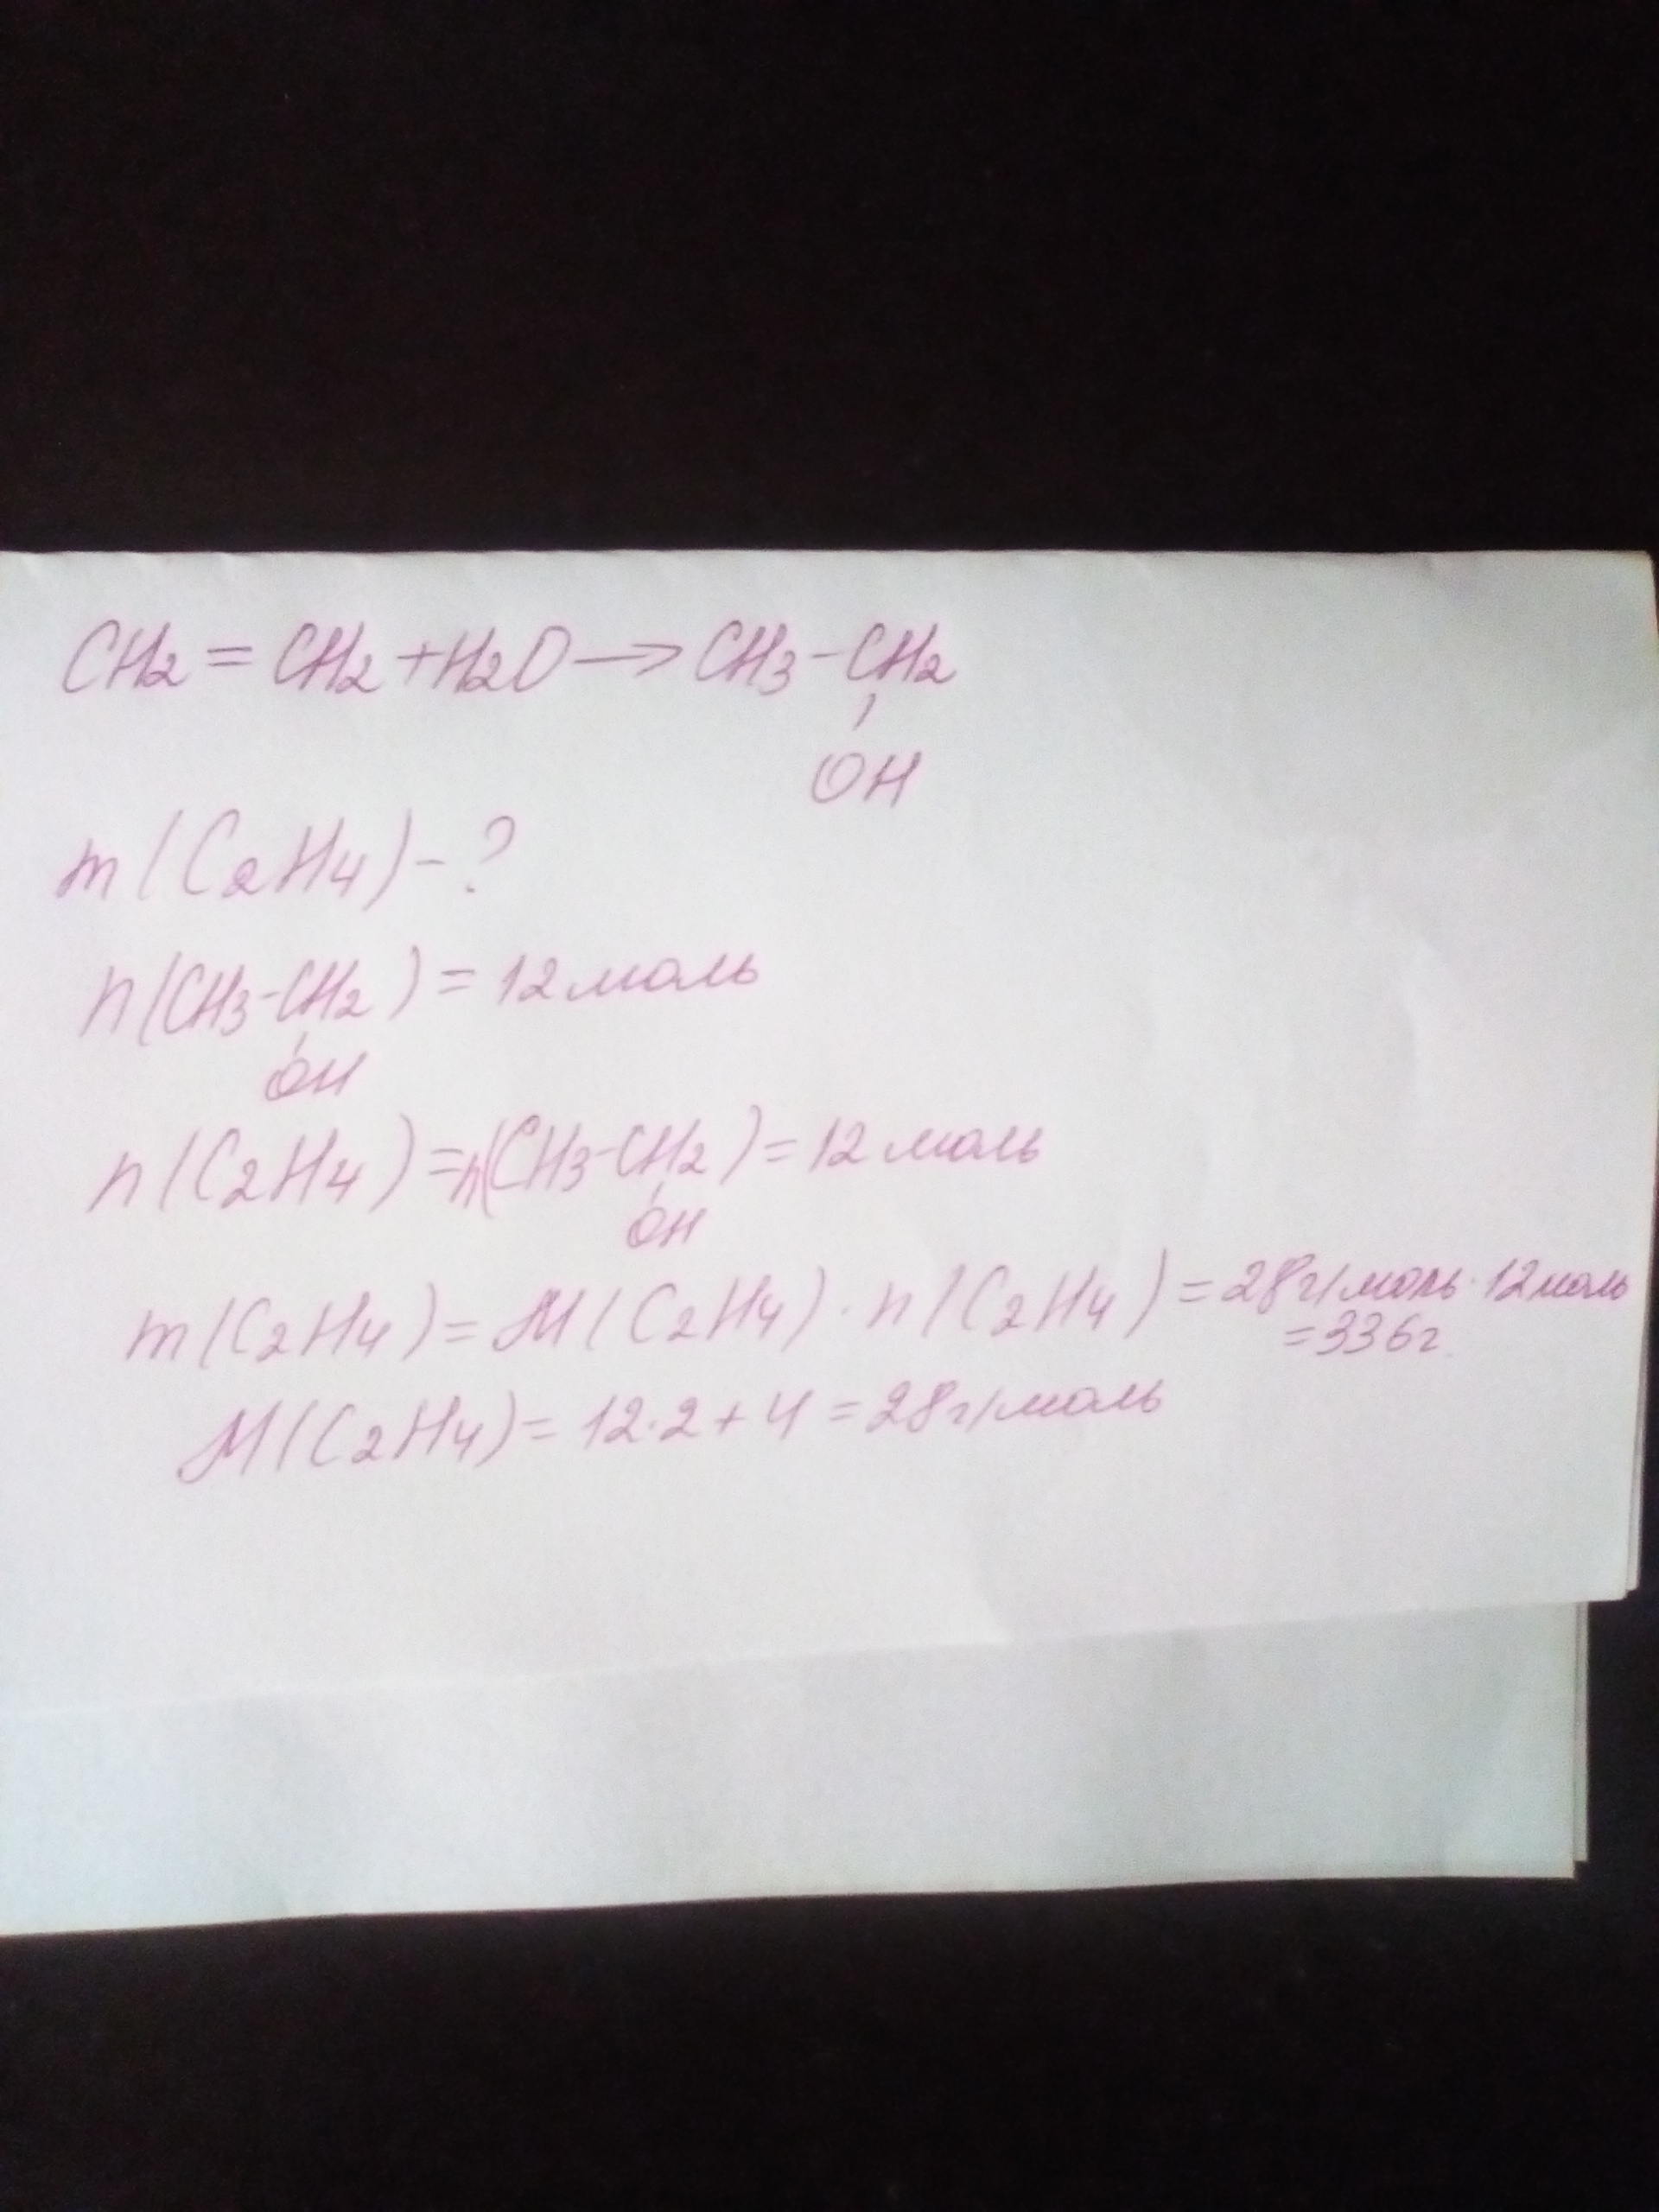 CH2 = CH2 + H2O → CH3 - CH2
OH
m(C2H4) - ?
n(CH3-CH2) = 12 моль
OH
n(C2H4) = n(CH3-CH2) = 12 моль
OH
m(C2H4) = M(C2H4) · n(C2H4) = 28г/моль · 12моль
= 336г
M(C2H4) = 12·2 + 4 = 28г/моль